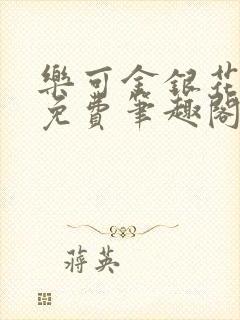 樂可金銀花
免費筆趣閣
蔣英